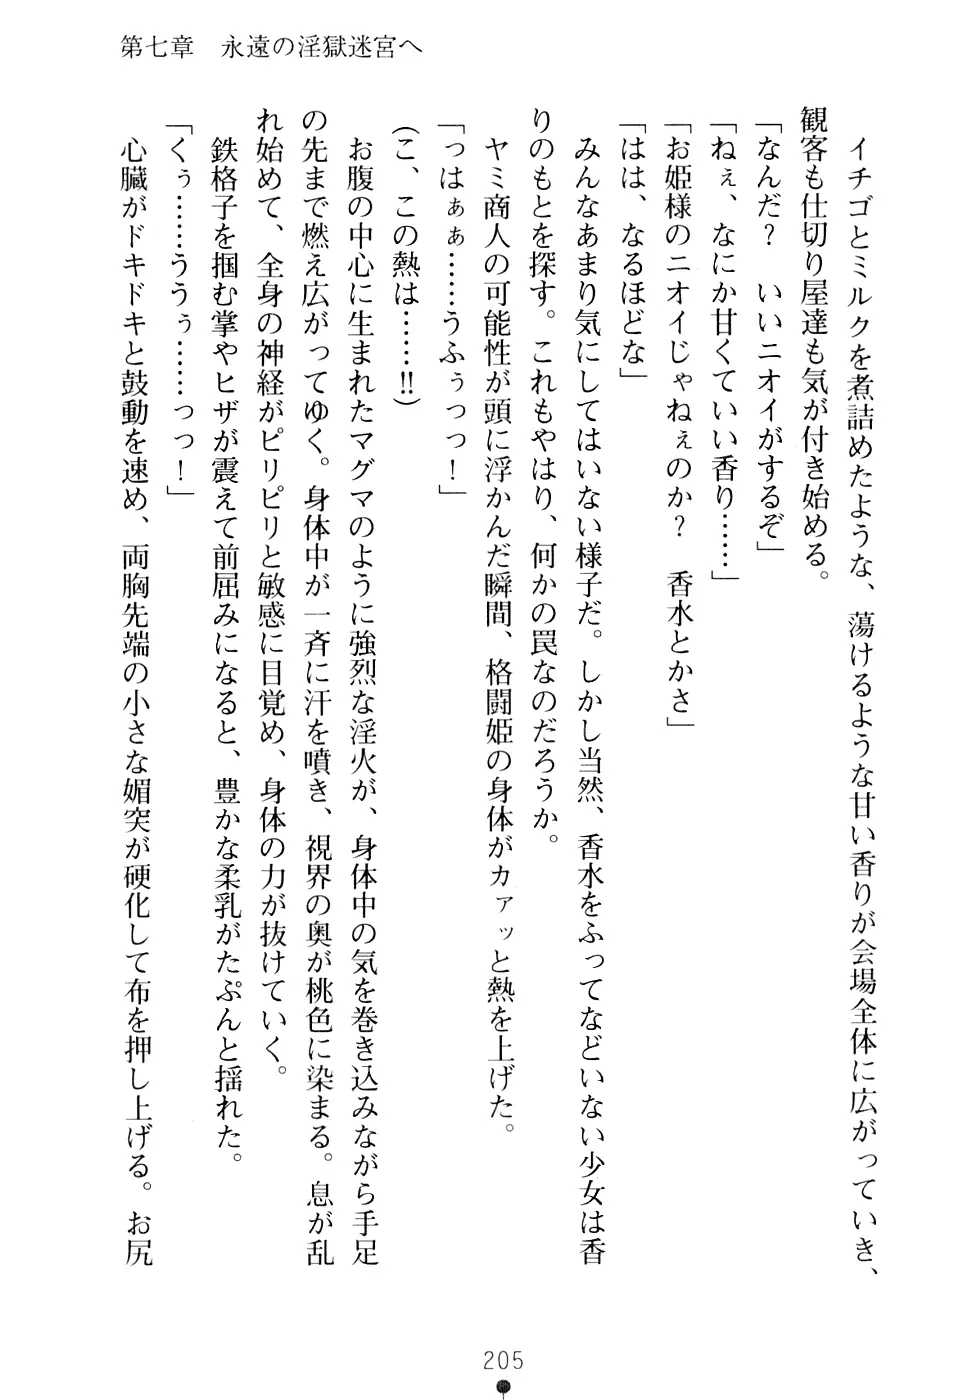 第七章　永遠の淫獄迷宮へ
イチゴとミルクを煮詰めたような、蕩けるような甘い香りが会場全体に広がっていき、
観客も仕切り屋達も気が付き始める。
「なんだ？　いいニオイがするぞ」
「ねぇ、なにか甘くていい香り……」
「お姫様のニオイじゃねぇのか？　香水とかさ」
「はは、なるほどな」
みんなあまり気にしてはいない様子だ。しかし当然、香水をふってなどいない少女は香
りのもとを探す。これもやはり、何かの罠なのだろうか。
ヤミ商人の可能性が頭に浮かんだ瞬間、格闘姫の身体がカァッと熱を上げた。
「っはぁぁ……うふぅっっ！」
（こ、この熱は……!!）
お腹の中心に生まれたマグマのように強烈な淫火が、身体中の気を巻き込みながら手足
の先まで燃え広がってゆく。身体中が一斉に汗を噴き、視界の奥が桃色に染まる。息が乱
れ始めて、全身の神経がピリピリと敏感に目覚め、身体の力が抜けていく。
鉄格子を掴む掌やヒザが震えて前屈みになると、豊かな柔乳がたぷんと揺れた。
「くぅ……ううぅ……っっ！」
心臓がドキドキと鼓動を速め、両胸先端の小さな媚突が硬化して布を押し上げる。お尻
205